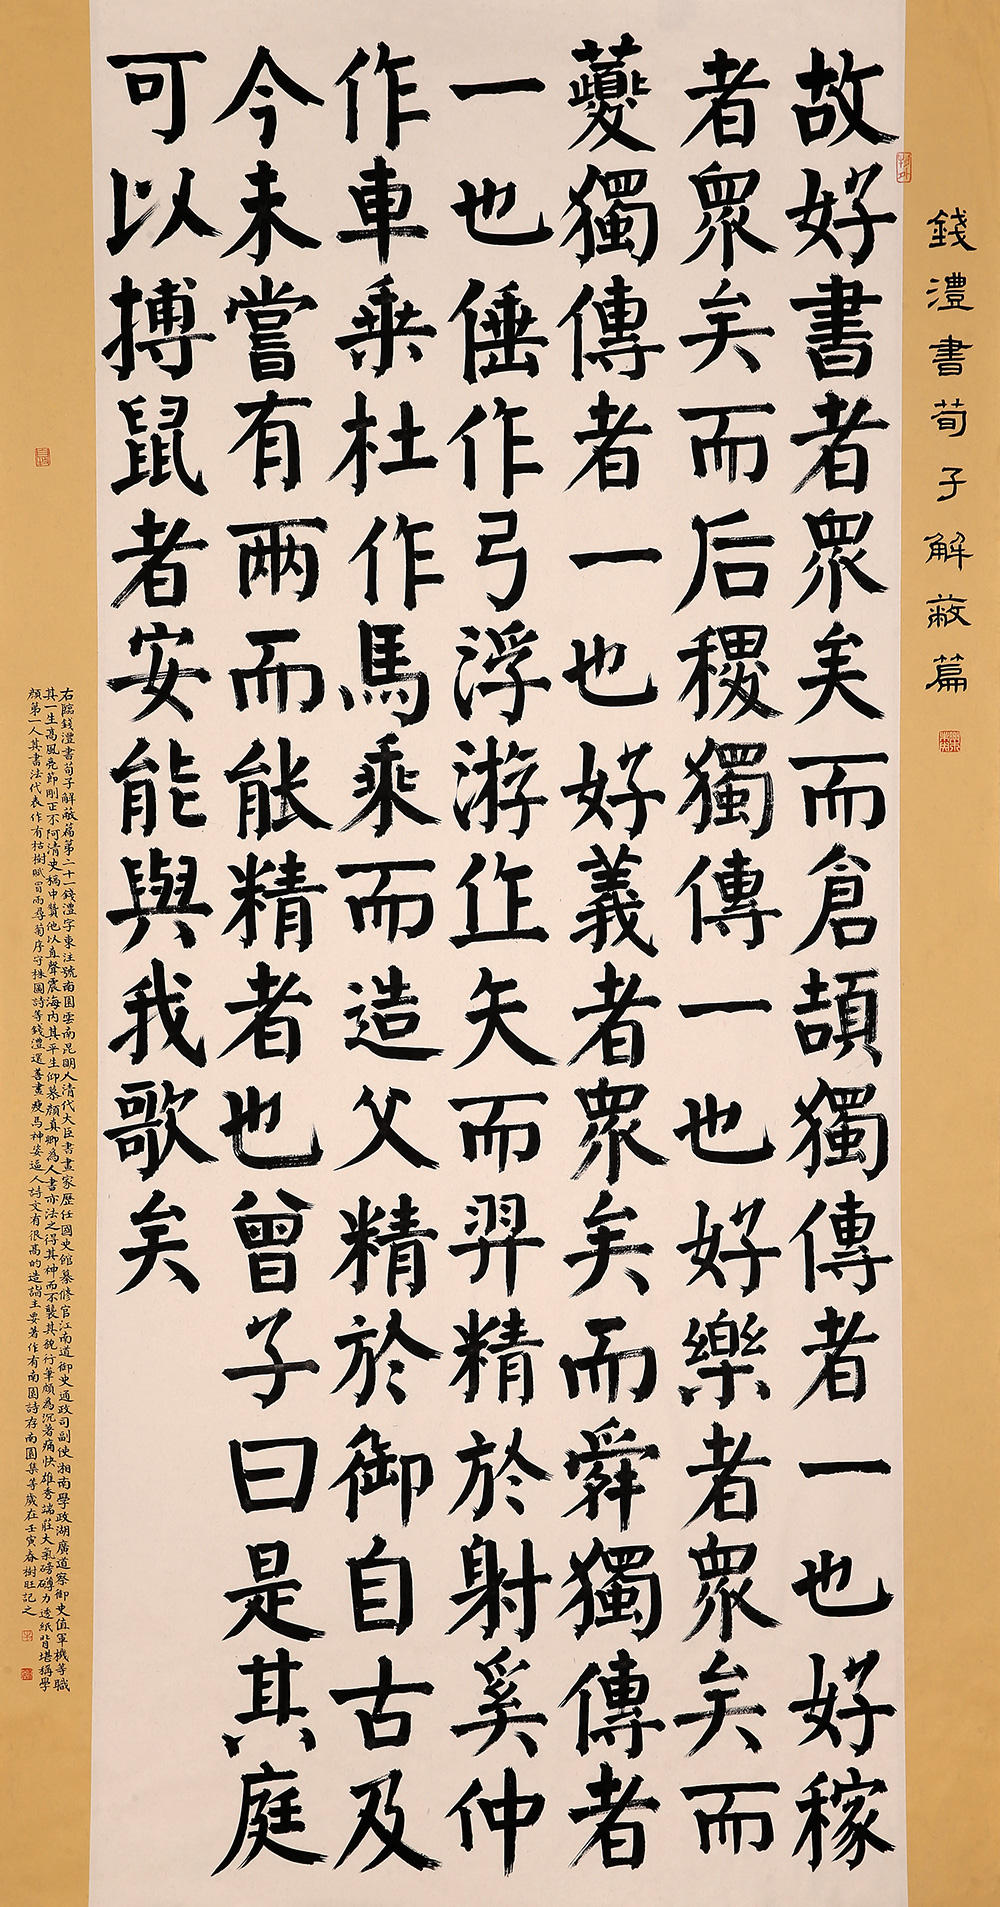 錢澧書荀子解蔽篇
故好書者眾矣而倉頡獨傳者一也好稼
者眾矣而后稷獨傳一也好樂者眾矣而
夔獨傳者一也好義者眾矣而舜獨傳者
一也倕作弓浮游作矢而羿精於射奚仲
作車乘杜作馬乘而造父精於御自古及
今未嘗有兩而能精者也曾子曰是其庭
可以搏鼠者安能與我歌矣
右臨錢澧書荀子解蔽篇第二十一錢澧字東注號南園雲南昆明人清代大臣書畫家歷任國史館纂修官江南道御史通政司副使湘南學政湖廣道察御史值軍機等職
其一生高風亮節剛正不阿清史稿中贊他以直聲震海內其平生仰慕顏真卿為人書亦法之得其神而不襲其貌行筆頗為沉著痛快雄秀端莊大氣磅礡力透紙背堪稱學
顏第一人其書法代表作有枯樹賦冒雨尋菊序守株圖詩等錢澧還善畫瘦馬神姿逼人詩文有很高的造詣主要著作有南園詩存南園集等歲在壬寅春樹旺記之